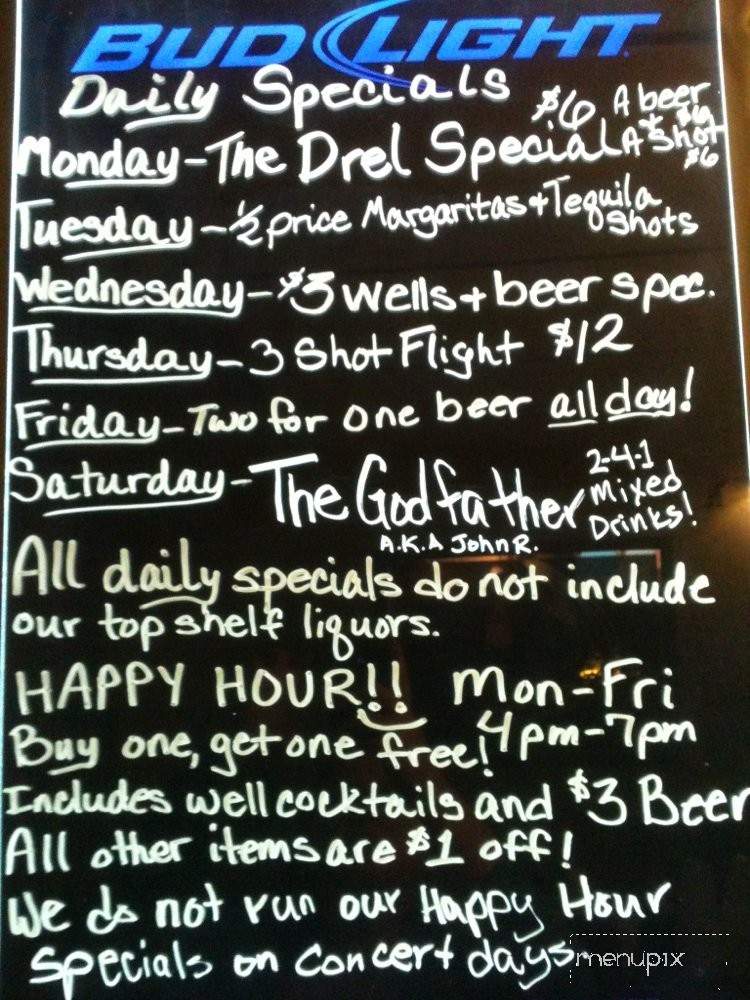 BUD LIGHT
Daily Specials
Monday - The Drel Special $6 A beer + A shot $6
Tuesday - 1/2 price Margaritas + Tequila Shots
Wednesday - $3 Wells + beer spec.
Thursday - 3 Shot Flight $12
Friday - Two for one beer all day!
Saturday - The Godfather 2-4-1 Mixed Drinks!
A.K.A John R.
All daily specials do not include
our top shelf liquors.
HAPPY HOUR!! Mon-Fri
Buy one, get one free! 4pm-7pm
Includes well cocktails and $3 Beer
All other items are $1 off!
We do not run our Happy Hour
Specials on concert days.
menupix